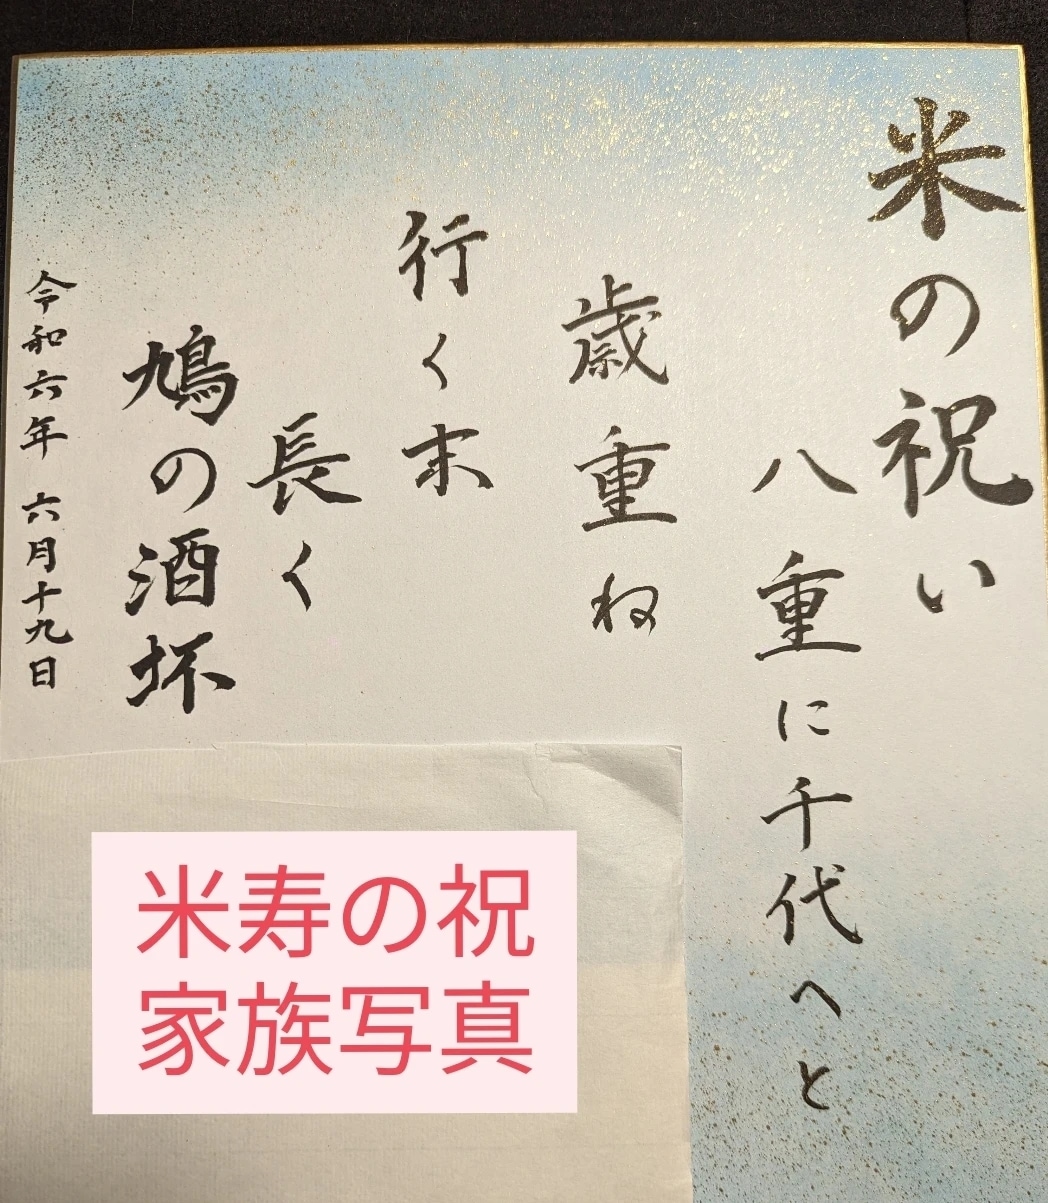 米の祝い
八重に千代へと
歳重ね
行く末
長く
鳩の酒坏
令和六年 六月十九日
米寿の祝
家族写真